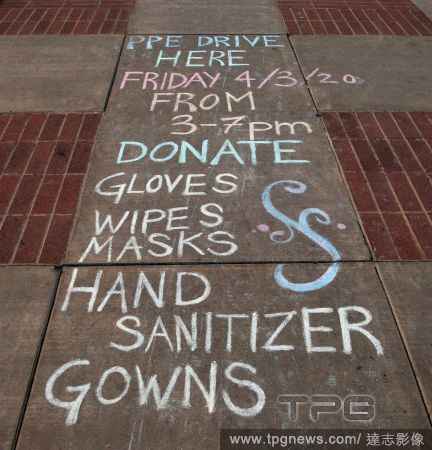 PPE DRIVE
HERE
FRIDAY 4/3/20
FROM
3-7pm
DONATE
GLOVES
WIPES
MASKS
HAND
SANITIZER
GOWNS
TPG
www.tpgnews.com/ 達志影像